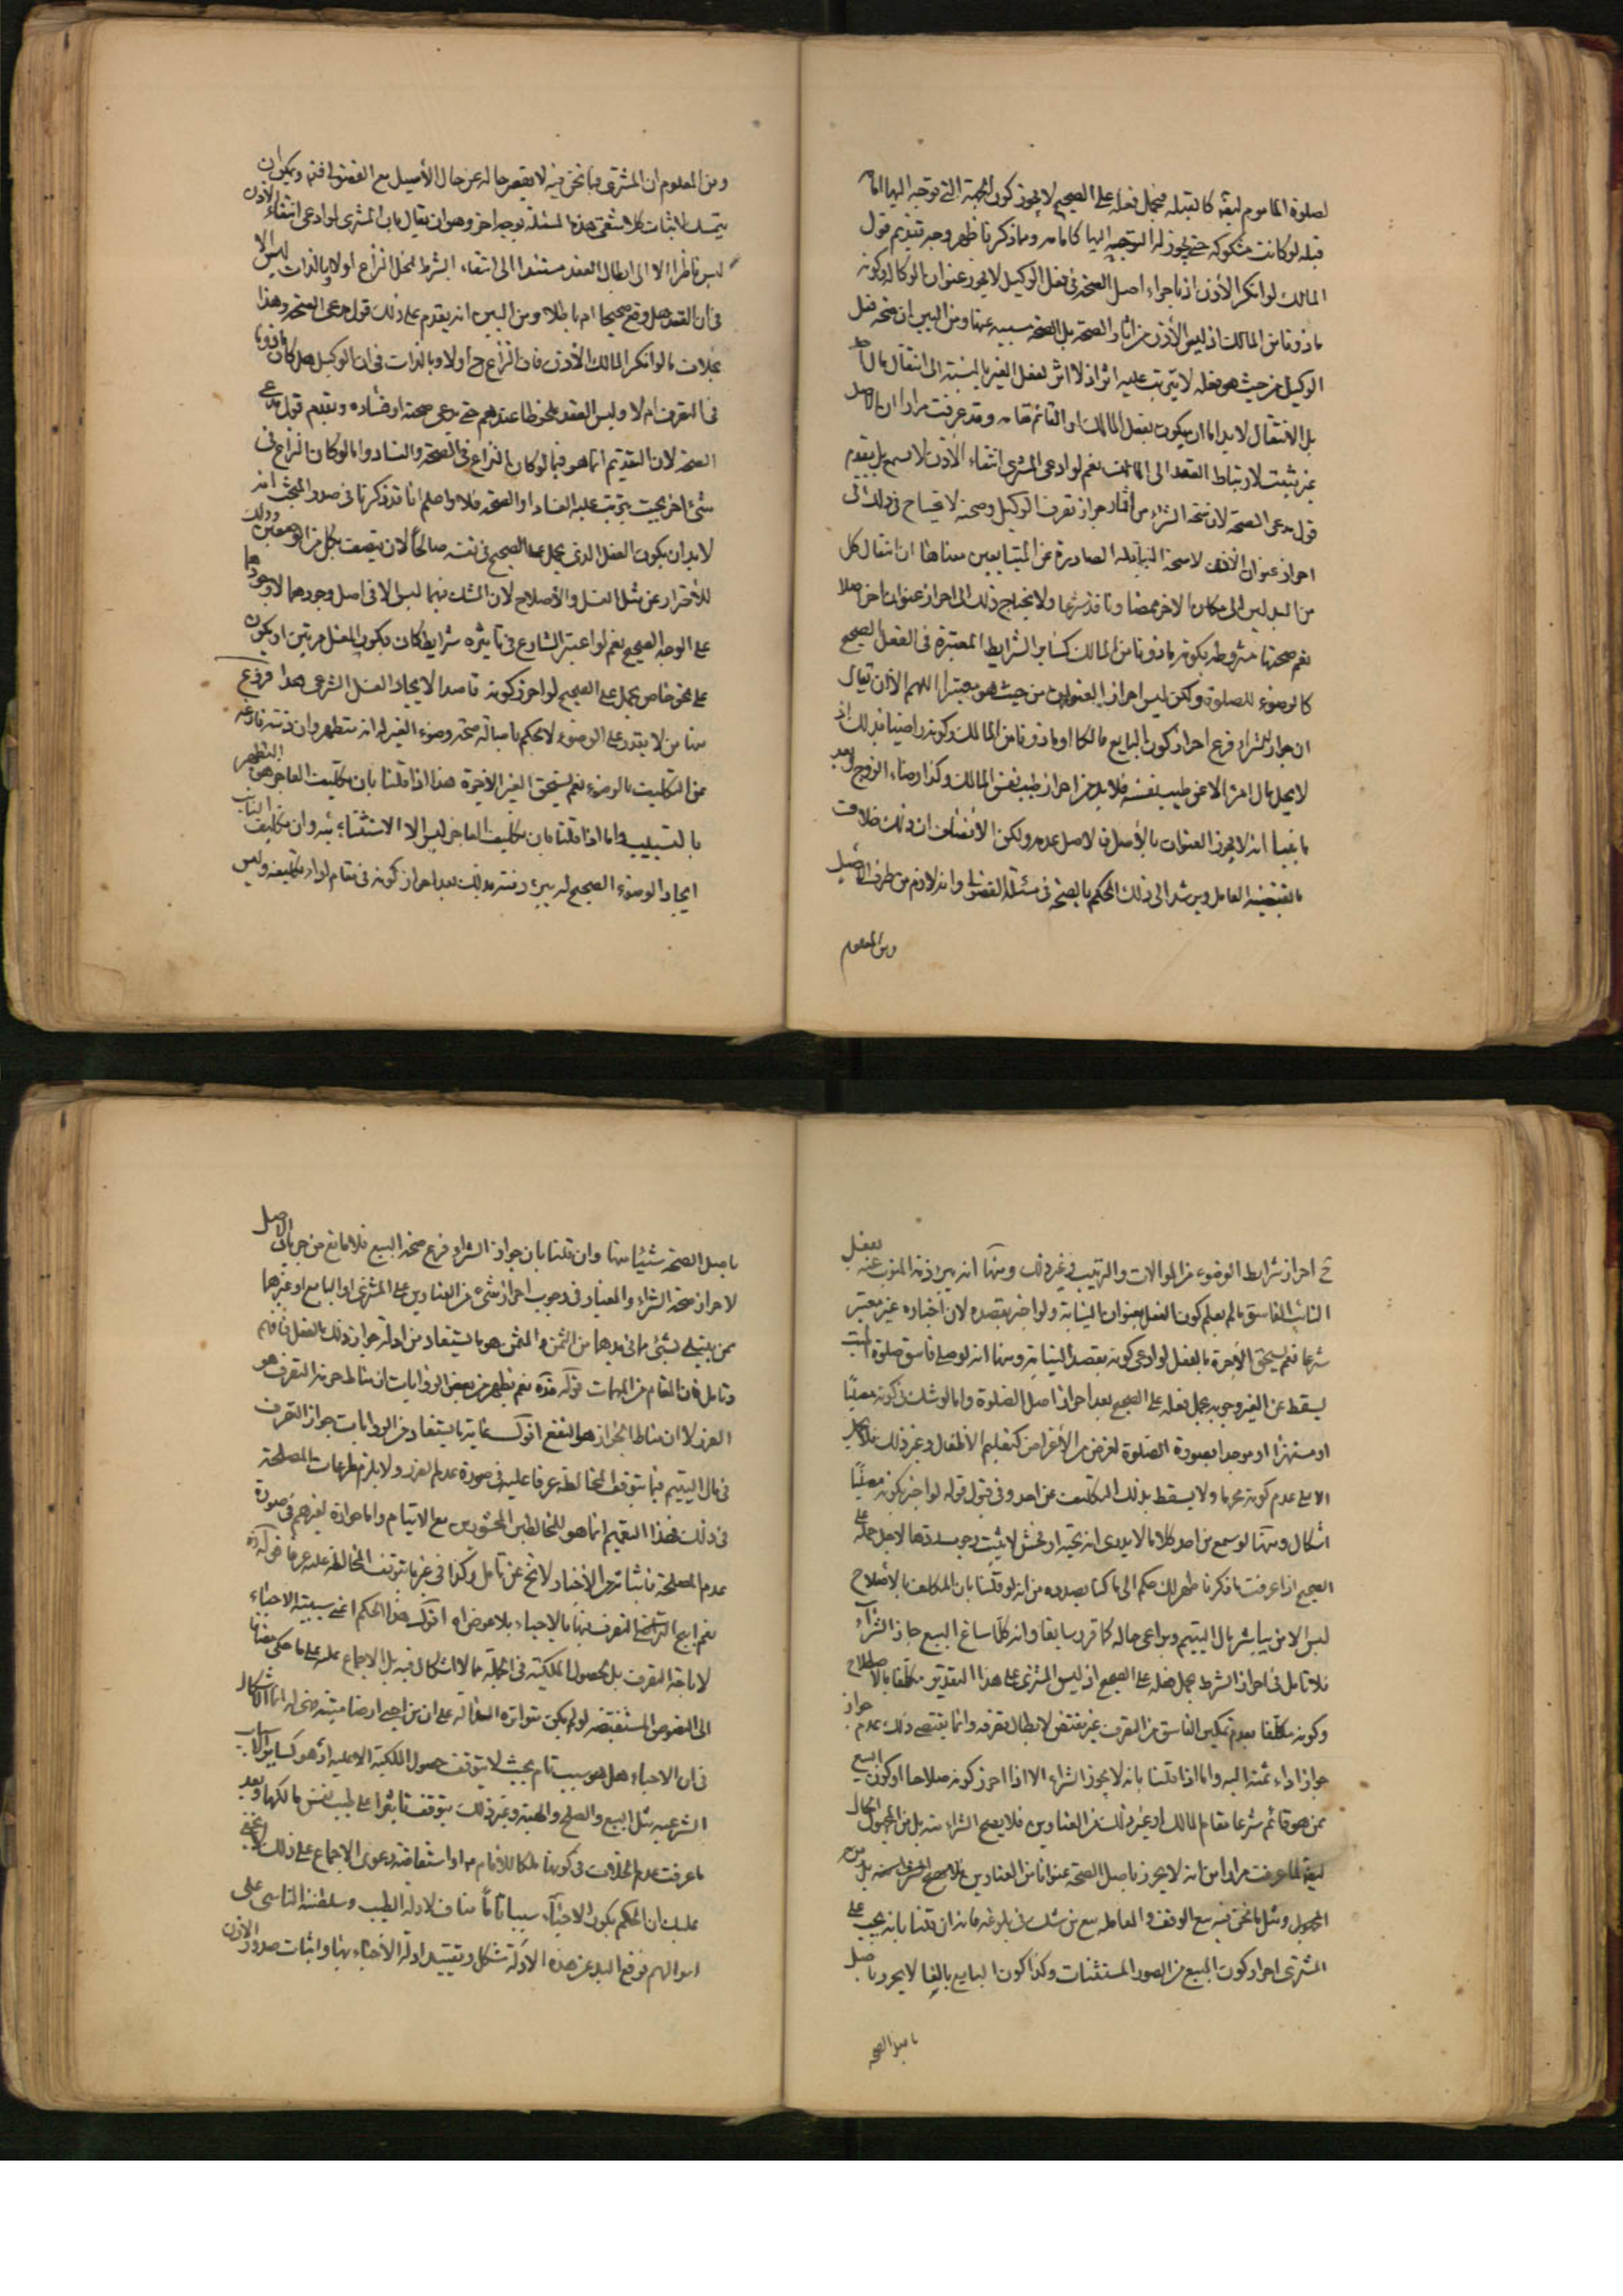 لصلوة المأموم لبقية كالقبلة فيحمل فعله على الصحيح لا يجوز كون الجهة التي توجه اليها الامام
قبلة لو كانت مشكوكة حتى يجوز له التوجه اليها كامامه ومما ذكرنا ظهر وجه تقديم قول
المالك لو انكر الأذن اذ باجراء اصل الصحة في فعل الوكيل لا يحرز عنوان الوكالة وكونه
ماذونا من المالك اذ ليس الأذن من اثار الصحة بل الصحة مسببة عنها ومن البين ان صحة فعل
الوكيل من حيث هو فعله لا يترتب عليه اثر اذ لا اثر لفعل الغير بالنسبة الى انتقال مال احد
بل الانتقال لا بد اما ان يكون بفعل المالك او القائم مقامه وقد عرفت مرارا ان بالاصل
غير مثبت لارتباط العقد الى المالك نعم لو ادعى المشترى انتفاء الأذن لا يسمع بل يقدم
قول مدعى الصحة لان صحة الشراء من اثار جواز تصرف الوكيل وصحته لا يحتاج في ذلك الى
احراز عنوان الأذن لا صحة النقابلة الصادرة من المتبايعين معناها ان انتقال كل
من البدلين الى مكان الاخر ممضا ونافذ شرعا ولا يحتاج ذلك الى احراز عنوان اخر اصلا
نعم صحتها مشروطة بكونه ماذونا من المالك كساير الشرايط المعتبرة في الفعل الصحيح
كالوضوء للصلوة ولكن ليس احراز العنوان من حيث هو معتبرا اللهم الا ان يقال
ان جواز الشراء فرع احراز كون البايع مالكا او ماذونا من المالك وكونه راضيا بذلك اذ
لا يحل مال امرء الا عن طيب نفسه فلا بد من احراز طيب نفس المالك وكذا رضاء الزوج بعد
ما بينا انه لا يحرز العنوان بالأصل فالاصل عدمه ولكن الأنصاف ان ذلك خلاف
ما يقتضيه العامل ويرشد الى ذلك الحكم بالصحة في مسئلة الفضولى وانه لازم من طرف الأصيل
ومن المعلوم
ومن المعلوم ان المشترى فيما نحن فيه لا يقصر حاله عن حال الأصيل مع الفضولى فتدبر ويمكن ان
يتمسك لاثبات كلا شقى هذه المسئلة بوجه اخر وهو ان يقال بان المشترى لو ادعى انتفاء الأذن
ليس ناظرا الا الى ابطال العقد مستندا الى انتفاء الشرط فمحل النزاع اولا وبالذات ليس الا
في ان العقد هل وقع صحيحا ام باطلا ومن البين انه يقدم على ذلك قول مدعى الصحة وهذا
بخلاف ما لو انكر المالك الأذن فان النزاع ح اولا وبالذات في ان الوكيل هل كان ماذونا
في التصرف ام لا وليس العقد ملحوظا عندهم حتى يدعى صحته او فساده ويقدم قول مدعى
الصحة لان التقديم انما هو فيما لو كان النزاع في الصحة والفساد واما لو كان النزاع في
شئ اخر بحيث يترتب عليه الفساد او الصحة فلا واعلم انا قد ذكرنا في صدر المبحث انه
لا بد ان يكون الفعل الذي يحمل على الصحيح في نفسه صالحا لان يتصف بكل من الوصفين وذلك
للأحتراز عن مثل الغسل والأصلاح لان الشك فيهما ليس الا في اصل وجودهما لا وجودهما
على الوجه الصحيح نعم لو اعتبر الشارع في تأثيره شرايط كان يكون الغسل مرتين او يكون
على نحو خاص يحمل على الصحيح لو احرز كونه قاصدا لايجاد الغسل الشرعى هذا فروع
منها من لا يقدر على الوضوء لا يحكم باصالة صحة وضوء الغير له انه متطهر وان ذمته فارغة
عن التكليف بالوضوء نعم يستحق الغير الأجرة هذا اذا قلنا بان تكليف العاجز هو التطهير
بالتسبيب واما اذا قلنا بان تكليف العاجز ليس الا الاستنابة فيه وان تكليف النايب
ايجاد الوضوء الصحيح له يبرء ذمته بذلك بعد احراز كونه في مقام اداء تكليفه وليس
ح احراز شرايط الوضوء من الموالات والترتيب وغير ذلك ومنها انه يبرء ذمة المنوب عنه بفعل
النائب الفاسق ما لم يعلم كون الفعل بعنوان النيابة ولو اخبر بقصده لان اخباره غير معتبر
شرعا نعم يستحق الأجرة بالفعل لو ادعى كونه بقصد النيابة ومنها انه لو صلى فاسق صلوة الميت
يسقط عن الغير وجوبه بحمل فعله على الصحيح بعد احراز اصل الصلوة واما لو شك في كونه مصليا
او مستهزئا او موجدا بصورة الصلوة لغرض من الأغراض كتعليم الأطفال وغير ذلك فلا يحمل
الا على عدم كونه محرما ولا يسقط بذلك التكليف عن احد وفي قبول قوله لو اخبر بكونه مصليا
اشكال ومنها لو سمع من احد كلاما لا يدرى انه تحية او فحش لا يثبت وجوب ردها لاجل حمله على
الصحيح اذا عرفت ما ذكرنا ظهر لك حكم الى ما كنا بصدده من انه لو قلنا بان المكلف بالأصلاح
ليس الا من يباشر مال اليتيم ويراعى حاله كما قرر سابقا وانه كلما ساغ البيع جاز الشراء
فلا تأمل في احراز الشرط بحمل فعله على الصحيح اذ ليس المشترى على هذا التقدير مكلفا بالأصلاح
وكونه مكلفا بعدم تمكين الفاسق من التصرف غير مقتض لابطال تصرفه وانما يقتضى ذلك عدم جواز
جواز اداء ثمنه اليه واما اذا قلنا بانه لا يجوز الشراء الا اذا احرز كونه صلاحا او كون البيع
ممن هو قائم شرعا مقام المالك او غير ذلك من العناوين فلا يصح الشراء منه بل من المجهول الحال
لما عرفت مرارا من انه لا يحرز باصل الصحة عنوانا من العناوين فلا يصح الشراء منه بل من
المجهول ومثل ما نحن فيه بيع الوقف والمعاملة مع من شك في بلوغه فانه ان قلنا بانه يجب على
المشترى احراز كون المبيع من الصور المستثنيات وكذا كون البايع بالغا لا يحرز باصل
باصل الصحة
باصل الصحة شيئا منها وان قلنا بان جواز الشراء فرع صحة البيع فلا مانع من جريان الاصل
لاحراز صحة الشراء والمعيار في وجوب احراز شئ من العناوين على المشترى او البايع او غيرهما
ممن يبتلى بشئ ما في يديهما من الثمن والمثمن هو ما يستفاد من ادلة جواز ذلك بالفعل فافهم
وتامل فان المقام من المهمات قوله قده نعم يظهر من بعض الروايات ان مناط حرمة التصرف هو
الضرر لا ان مناط الجواز هو النفع اقول غاية ما يستفاد من الروايات جواز التصرف
في مال اليتيم فيما يتوقف المخالطة عرفا عليه في صورة عدم الضرر ولا يلزم مراعات المصلحة
في ذلك فهذا التعميم انما هو للمخالطين المحشورين مع الايتام واما جوازه لغيرهم في صورة
عدم المصلحة فاثباته من الأخبار لا يخ عن تأمل وكذا في غير ما يتوقف المخالطة عليه عرفا قوله قده
نعم ابيح التصرف فيها بالاحياء بلا عوض اه اقول هذا الحكم اعنى سببية الاحياء
لاباحة التصرف بل لحصول الملكية في الجملة مما لا اشكال فيه بل الاجماع عليه على ما حكى مضافا
الى النصوص المستفيضة لو لم يكن متواترة الدالة على ان من احيى ارضا ميتة فهى له انما الاشكال
في ان الاحياء هل هو سبب تام بحيث لا يتوقف حصول الملكية الا عليه او هو كساير الاسباب
الشرعية مثل البيع والصلح والهبة وغير ذلك يتوقف تأثيرها على طيب نفس مالكها وبعد
ما عرفت عدم الخلاف في كونها ملكا للأمام ع واستفاضة دعوى الاجماع على ذلك لا يخفى
عليك ان الحكم بكون الاحياء سببا تاما مناف لادلة الطيب وسلطنة الناس على
اموالهم فرفع اليد عن هذه الأدلة مشكل وتقييد ادلة الأحياء بها واثبات صدور الأذن